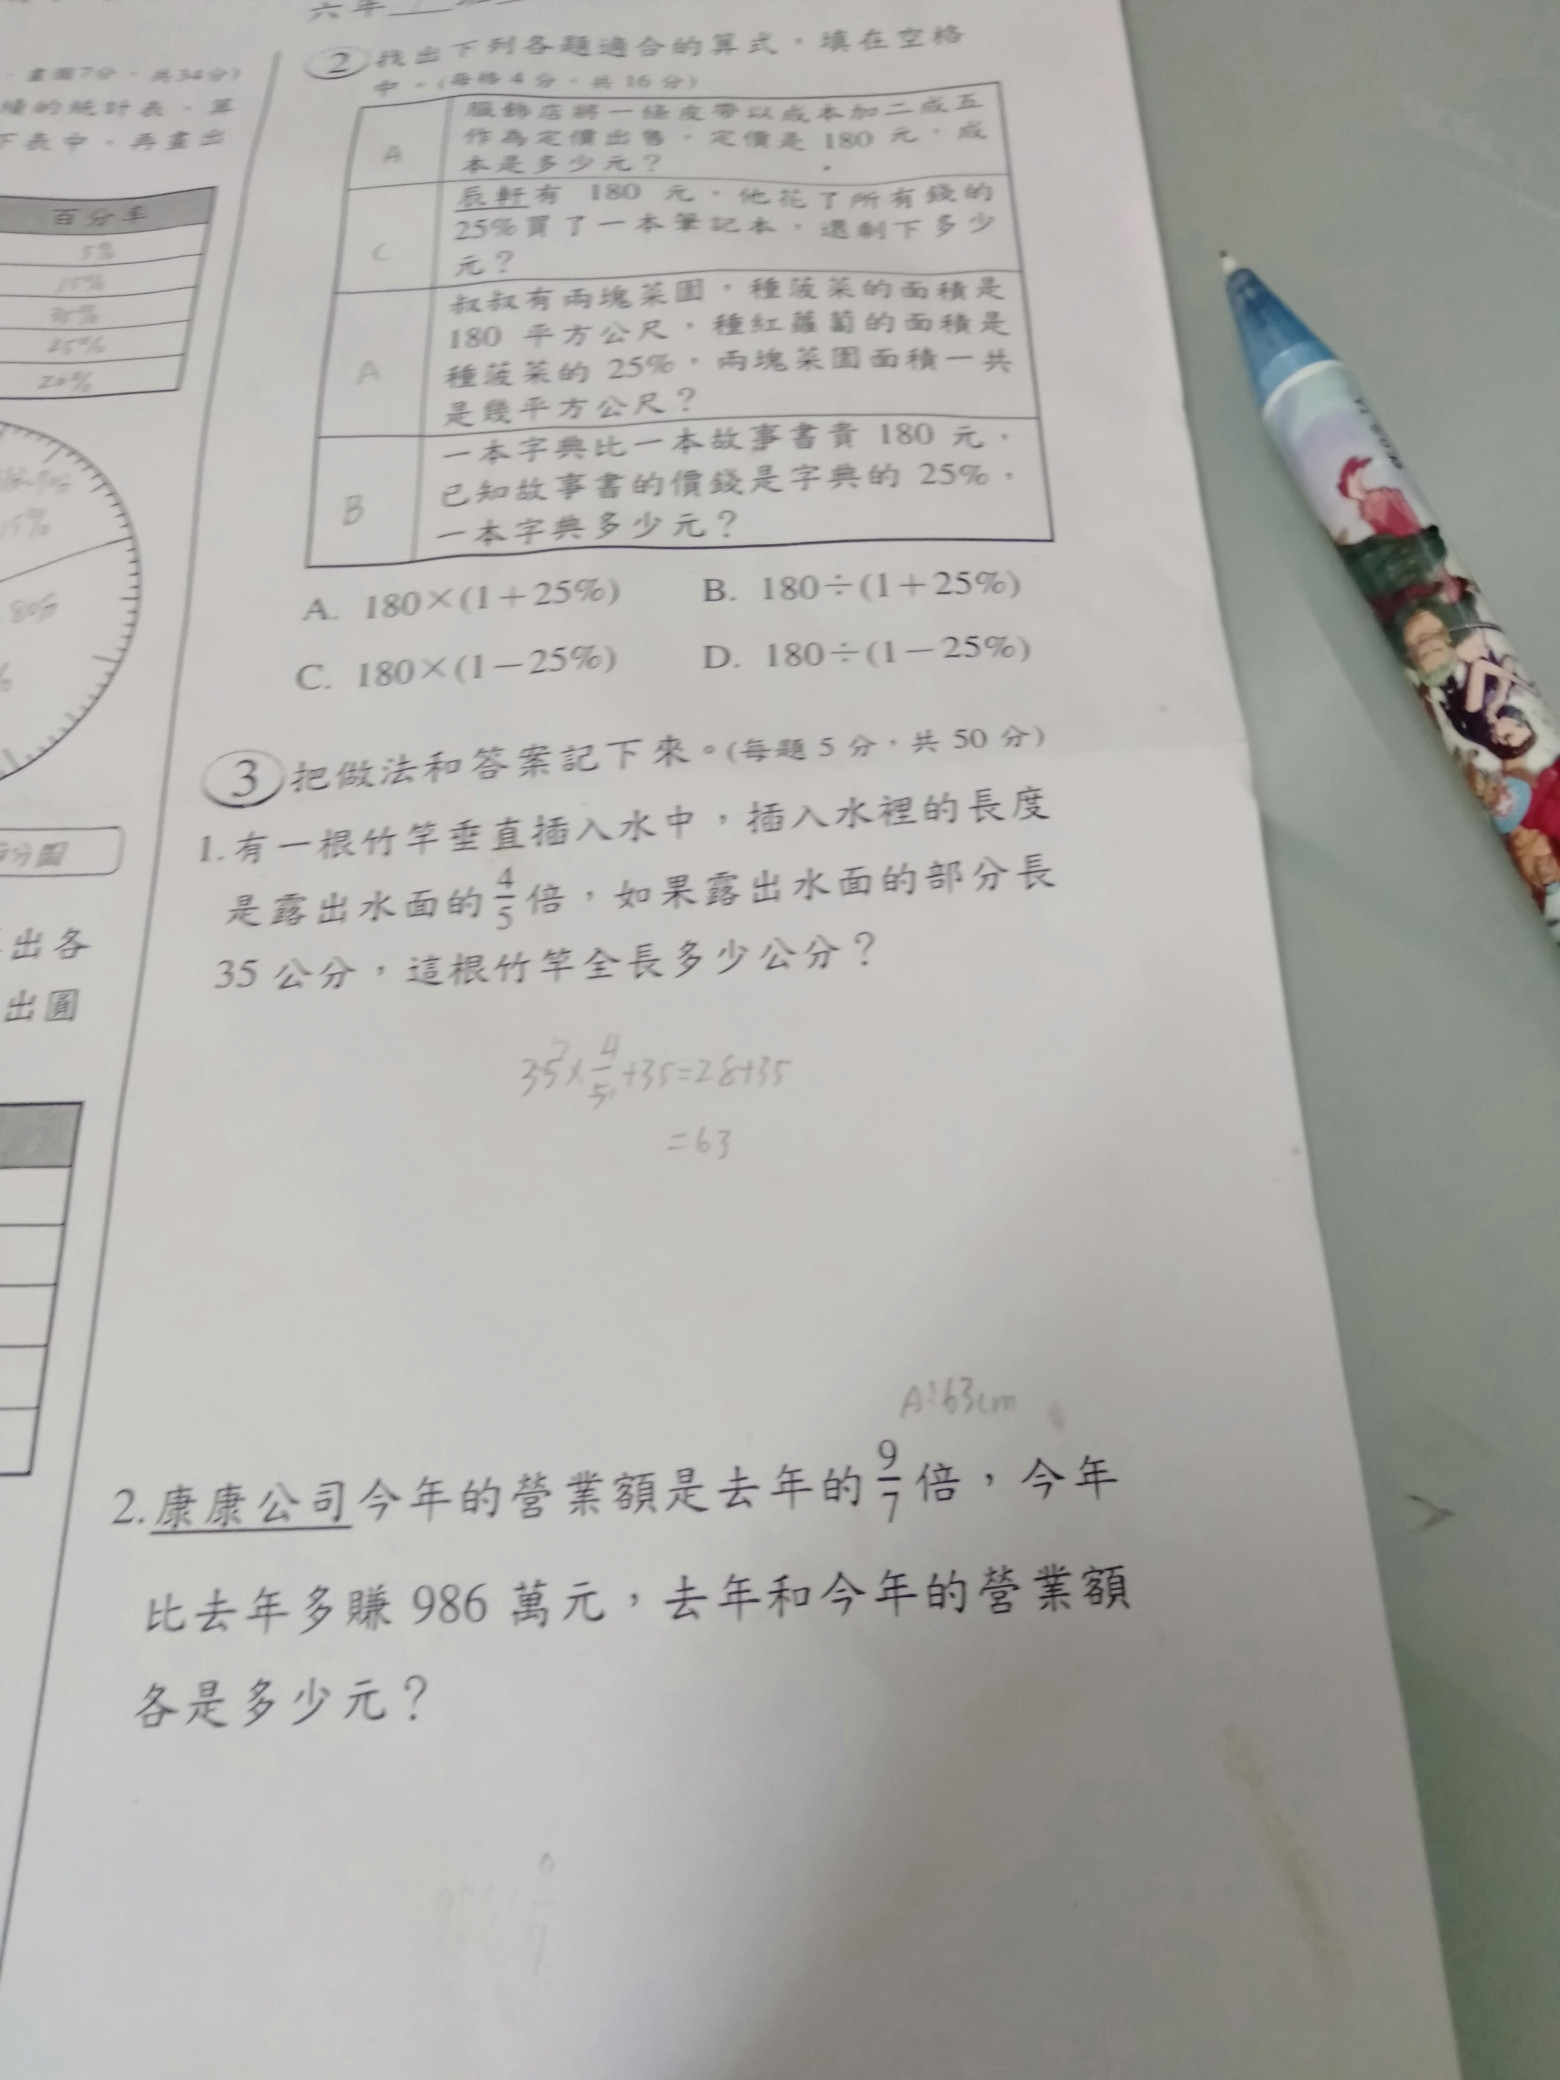 六年 班
畫圖7分,共34分)
的統計表,算
下表中,再畫出
百分率
5%
15%
35%
25%
20%
15%
分圖
出各
出圓
② 找出下列各題適合的算式,填在空格
中。(每格 4 分,共 16 分)
A
服飾店將一條皮帶以成本加二成五
作為定價出售,定價是 180 元,成
本是多少元?
C
辰軒有 180 元,他花了所有錢的
25%買了一本筆記本,還剩下多少
元?
A
叔叔有兩塊菜園,種菠菜的面積是
180 平方公尺,種紅蘿蔔的面積是
種菠菜的 25%,兩塊菜園面積一共
是幾平方公尺?
B
一本字典比一本故事書貴 180 元,
已知故事書的價錢是字典的 25%,
一本字典多少元?
A. 180×(1+25%) B. 180÷(1+25%)
C. 180×(1-25%) D. 180÷(1-25%)
③ 把做法和答案記下來。(每題 5 分,共 50 分)
1.有一根竹竿垂直插入水中,插入水裡的長度
是露出水面的4/5倍,如果露出水面的部分長
35 公分,這根竹竿全長多少公分?
35×4/5+35=28+35
=63
A:63cm
2.康康公司今年的營業額是去年的9/7倍,今年
比去年多賺 986 萬元,去年和今年的營業額
各是多少元?